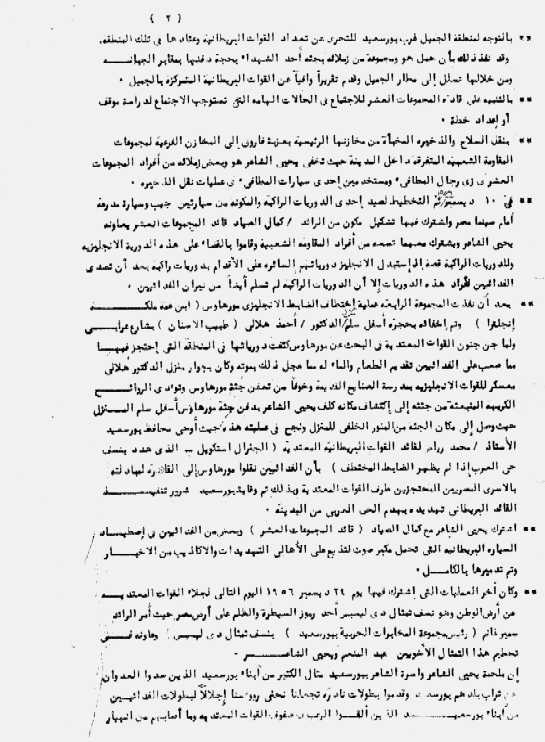 ( ٢ )
** بالتوجه لمنطقة الجميل غرب بورسعيد للتحرى عن تعداد القوات البريطانية وعتادها فى تلك المنطقة،
وقد نفذ ذلك بأن حمل هو ومجموعة من زملائه جثة أحد الشهداء بحجة دفنها بمقابر الجبانة
ومن خلالها تسلل إلى مطار الجميل وقدم تقريراً وافياً عن القوات البريطانية المتمركزة بالجميل ٠
** بالتنبيه على قادة المجموعات العشر للإجتماع فى الحالات الهامه التى تستوجب الاجتماع لدراسة موقف
أو إعداد خطة ٠
** بنقل السلاح والذخيره المخبأة من مخازنها الرئيسية بعزبة فاروق إلى المخازن الفرعية لمجموعات
المقاومة الشعبية المتفرقة داخل المدينة حيث تخفى يحيى الشاعر هو وبعض زملائه من أفراد المجموعات
العشر فى زى رجال المطافىء ومستخدمين إحدى سيارات المطافىء فى عمليات نقل الذخيره ٠
** فى ١٠ ديسمبر تم التخطيط لصيد إحدى الدوريات الراكبة والمكونه من سيارتين جيب وسيارة مدرعة
أمام سينما مصر واشترك فيها تشكيل مكون من الرائد / كمال الصياد قائد المجموعات العشر يعاونه
يحيى الشاعر ويشترك معهما تسعه من أفراد المقاومه الشعبية وقاموا بالقضاء على هذه الدورية الانجليزيه
وللدوريات الراكبة قصة إذ إستبدل الانجليز دورياتهم السائره على الأقدام بدوريات راكبة بعد أن تصدى
الفدائيين لأفراد هذه الدوريات إلا أن الدوريات الراكبة لم تسلم أيضاً من نيران الفدائيين ٠
** بعد أن نفذت المجموعة الرابعة عملية إختطاف الضابط الانجليزى مورهاوس ( ابن عمة ملكة
إنجلترا ) وتم إخفائه بحجرة أسفل سلم الدكتور / أحمد هلالى ( طبيب الاسنان ) بشارع عرابى
ولما جن جنون القوات المعتدية فى البحث عن مورهاوس كثفت دورياتها فى المنطقة التى إحتجز فيها
مما صعب على الفدائيين تقديم الطعام والماء له مما عجل ذلك بموته وكان بجوار منزل الدكتور هلالى
معسكر للقوات الانجليزيه بمدرسة الصنايع القديمة وخوفاً من تعفن جثة مورهاوس وتؤدى الروائح
الكريهه المنبعثة من جثته إلى إكتشاف مكانه كلف يحيى الشاعر بدفن جثة مورهاوس أسفل سلم المنزل
حيث وصل إلى مكان الجثه من المنور الخلفى للمنزل ونجح فى عمليته هذه حيث أوحى محافظ بورسعيد
الأستاذ / محمد رياض لقائد القوات البريطانيه المعتدية ( الجنرال استكويل ـ الذى هدد بنسف
حى العرب إذا لم يظهر الضابط المختطف ) بأن الفدائيين نقلوا مورهاوس إلى القاهره لمبادلته
بالاسرى المصريين المحتجزين طرف القوات المعتدية وبذلك تم وقاية بورسعيد شرور تنفيذ
القائد البريطانى تهديده بهدم الحى العربى من المدينة ٠
** اشترك يحيى الشاعر مع كمال الصياد ( قائد المجموعات العشر ) وبعض من الفدائيين فى إصطياد
السياره البريطانية التى تحمل مكبر صوت لتذيع على الأهالى التهديدات والاكاذيب من الاخبار
وتم تدميرها بالكامل ٠
** وكان آخر العمليات التى إشترك فيها يوم ٢٤ ديسمبر ١٩٥٦ اليوم التالى لجلاء القوات المعتدية
عن أرض الوطن وهو نسف تمثال دى ليسبس أحد رموز السيطرة والظلم على أرض مصر حيث أمر الرائد
سمير غانم ( رئيس مجموعة المخابرات الحربية ببورسعيد ) بنسف تمثال دى ليسبس وعاونه فى
تحطيم هذا التمثال الأخوين عبد المنعم ويحيى الشاعر ٠
إن ملحمة يحيى الشاعر وأسرة الشاعر ببورسعيد مثال الكثير من أبناء بورسعيد الذين صدوا العدوان
عن تراب بلدهم بورسعيد وقدموا بطولات نادره تجعلنا نحنى رؤوسنا إجلالاً لبطولات الفدائيين
من أبناء بورسعيد الذين ألقوا الرعب فى صفوف القوات المعتديه وما أصابهم من انهيار